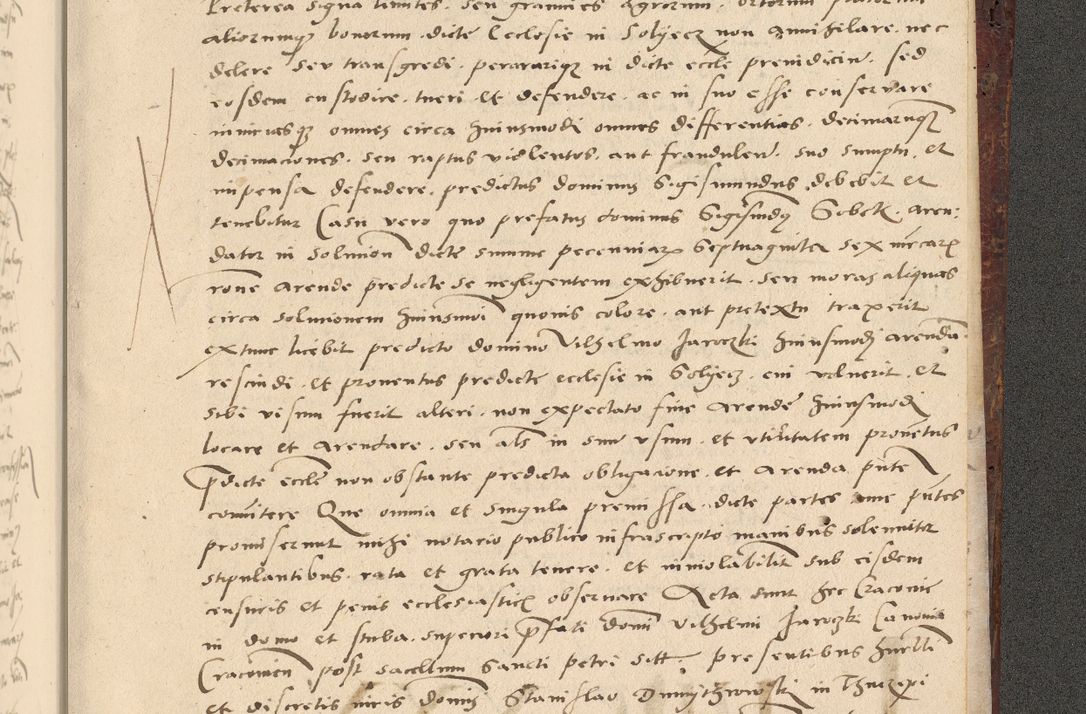 Preterea signa limites seu granicies Agrorum, Ortorum pratorum
aliorumqz bonorum dicte Ecclesie in Solyecz non Annihilare nec
delere seu transgredi perarareqz in dicte eccle preiudiciu. sed
eosdem custodire, tueri et defendere, ac in suo esse conservare
omnes circa huiusmodi omnes differentias, decimarumqz
decimaciones, seu raptus violentos, aut fraudulen. suo sumptu et
impensa defendere, predictus dominus Sigismundus debebit et
tenebitur Casu vero quo prefatus dominus Sigismdq Sobek, aren:
dator in solucion dicte summe pecuniar Septuaginta sex mcar
rone arende predicte se negligentem exhibuerit, seu moras aliquas
circa solucionem huiusmoi quouis colore, aut pretextu traxerit
extunc licebit predicto domino Vilhelmo Jaroczki huiusmodi arendam
rescindi, et prouentus predicte ecclesie in Solyecz, cui voluerit, et
sibi visum fuerit alteri, non expectato fine Arende huiusmodi
locare et Arendare, seu als in suu usum, et utilitatem prouetus
pdicte eccle non obstante predicta obligacione, et Arenda pnte
comitere Que omnia et singula premissa, dicte partes pntes
promiserunt mihi notario publico infrascripto manibus solenniter
stipulantibus, rata et grata tenere, et inuiolabilit sub eisdem
censuris et penis ecclesiasticis observare Acta sunt hec Cracovie
in domo et stuba superiori pfati domi Vilhelmi Jaroczki Canonici
Cracovien post sacellum Sancti petri sitt. presentibus
et discretis viris domis Stanislao in